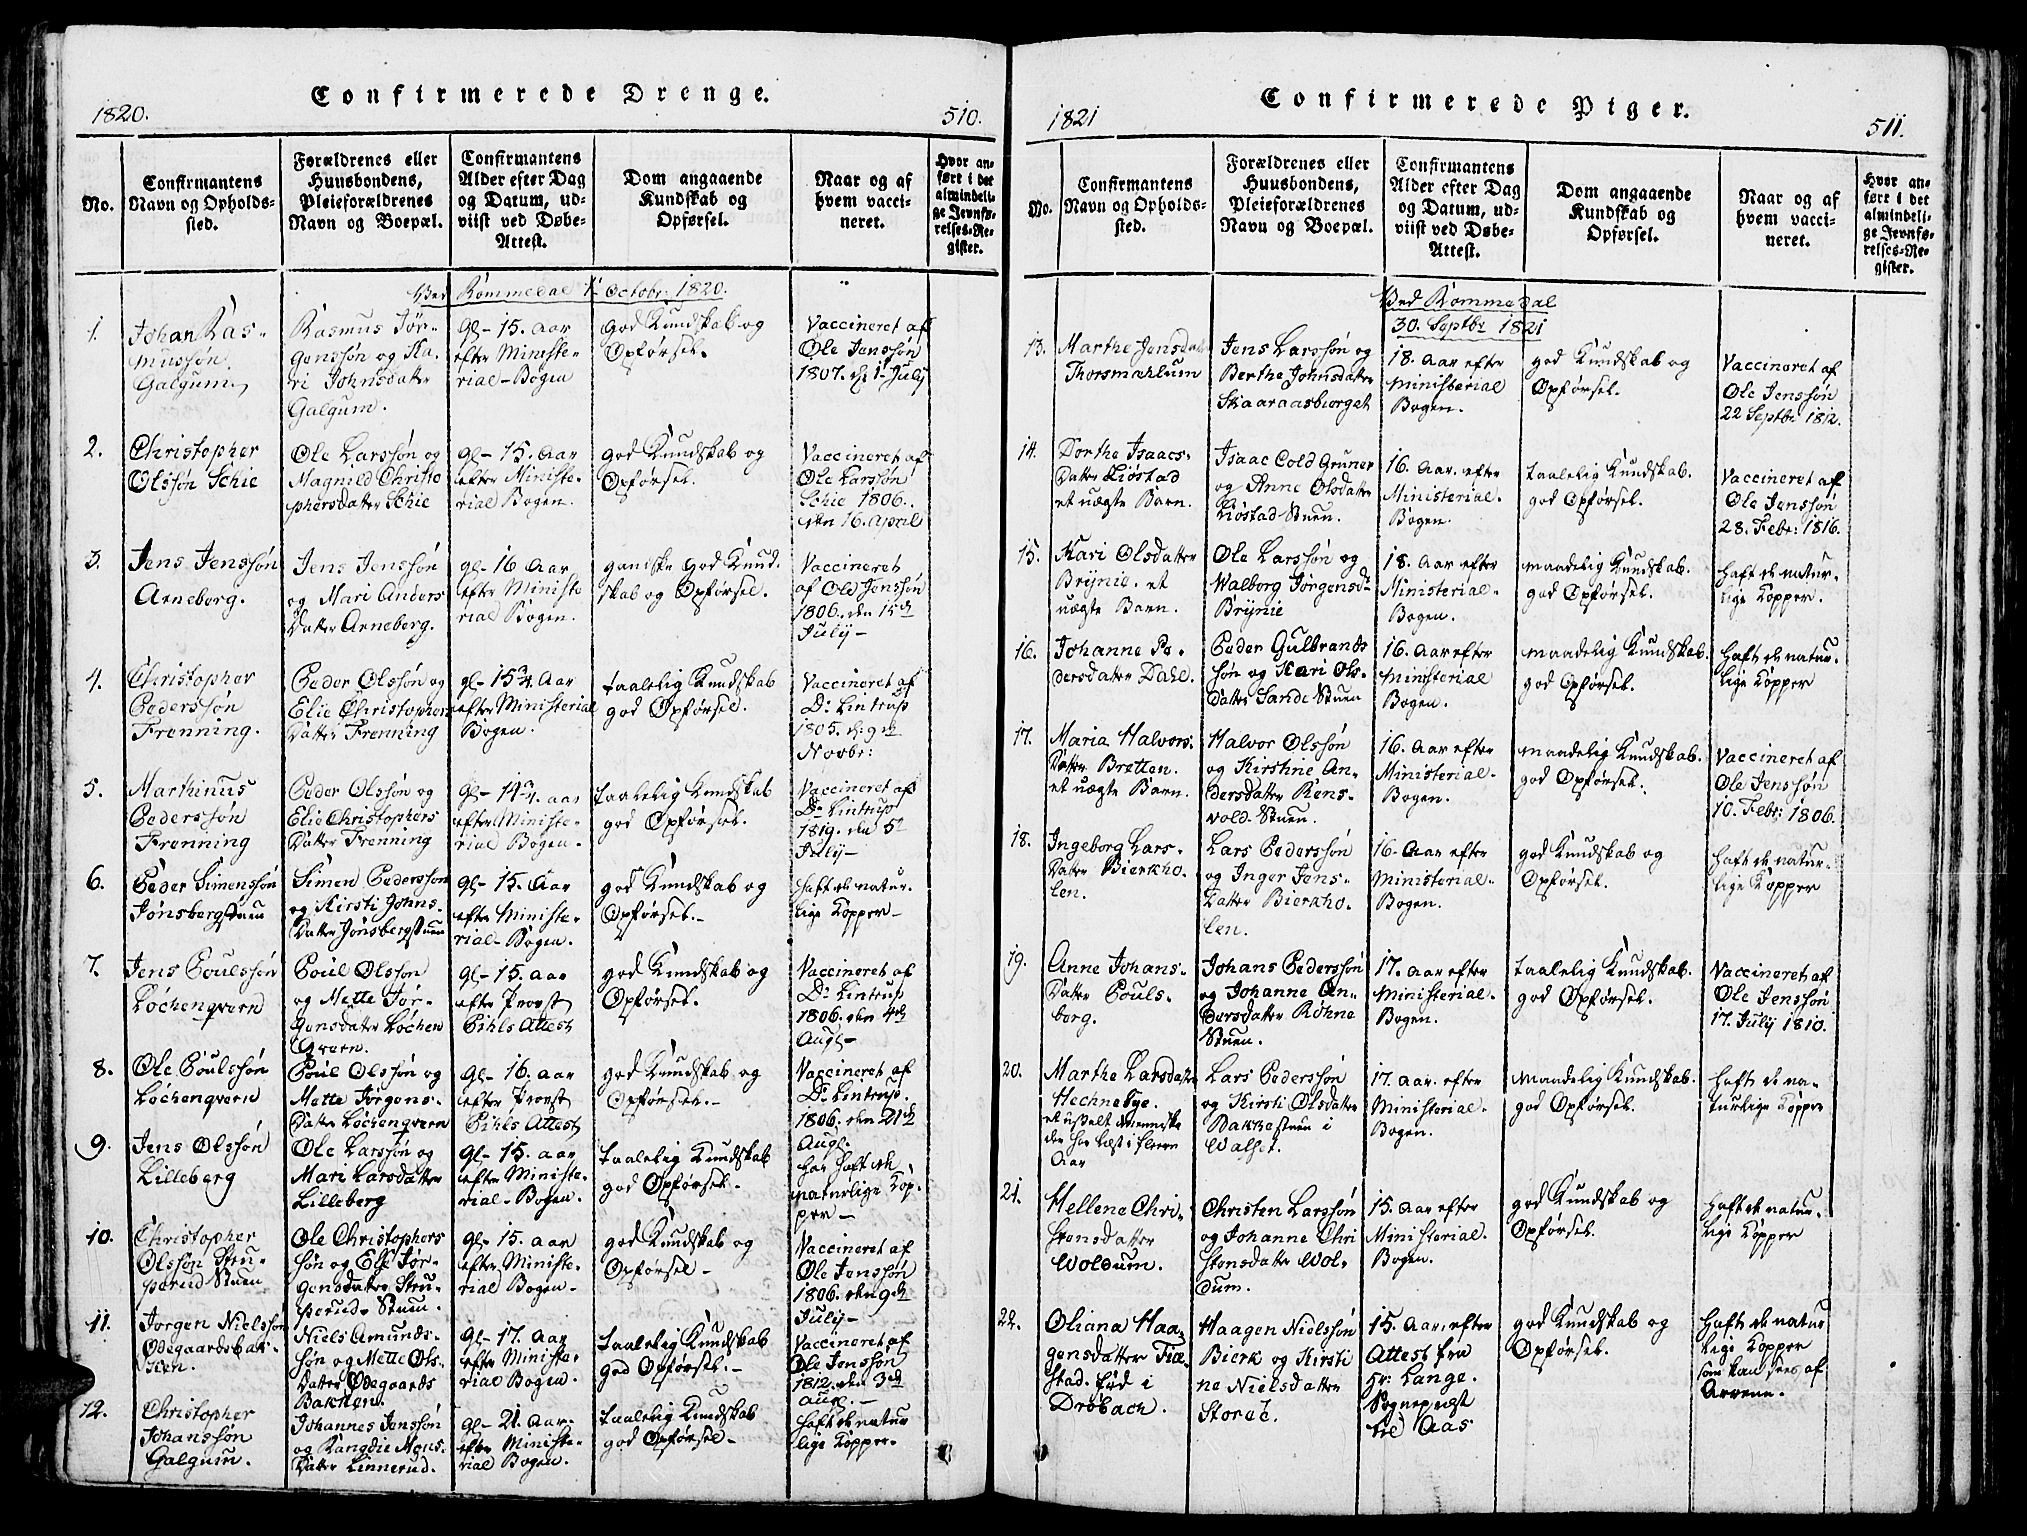 1820.
Confirmerede Drenge.
510.
No.
Confirmantens
Navn og Opholds-
sted.
Forældrenes eller
Huusbondens,
Pleieforældrenes
Navn og Boepæl.
Confirmantens
Alder efter Dag
og Datum, ud-
viist ved Døbe-
Attest.
Dom angaaende
Kundskab og
Opførsel.
Naar og af
hvem vacci-
neret.
Hvor an-
ført i det
almindeli-
ge Jevnfø-
relses-Re-
gister.
Ved Rommedal 1 Octobr: 1820.
1.
Johan Ras-
mussøn
Galgum.
Rasmus Jør-
genssøn og Ka-
ri Johnsdatter
Galgum.
Gl- 15. Aar
efter Ministe-
rial-Bogen
God Kundskab og
Opførsel.
Vaccineret af
Ole Jenssøn
1807. d. 1. July
2.
Christopher
Olssøn Schie
Ole Larssøn og
Magnild Christo
phersdatter Schie
gl- 15. Aar
efter Ministe-
rial Bogen.
god Kundskab og
Opførsel.
Vaccineret af
Ole Larssøn
Schie 1806.
den 16. April
3.
Jens Jenssøn
Arneberg.
Jens Jenssøn
og Mari Anders
Datter Arneberg.
gl- 16 Aar
efter Ministe
rial Bogen.
ganske god Kund.
skab og Opførsel.
Vaccineret
af Ole Jenssøn
1806. den
July-
4.
Christopher
Pederssøn
Frenning.
Peder Olssøn og
Elie Christophers
Datter Frenning
gl- 15¾ Aar
efter Ministerial
Bogen.
taalelig Kundskab
god Opførsel.
Vaccineret af
Dr Lintrup
1805. d: 9de
Novbr:
5.
Marthinus
Pederssøn
Frenning
Peder Olssøn og
Elie Christophers
Datter Frenning
Gl- 14¾. aar
efter Ministe-
rial Bogen-
taalelig Kundskab
god Opførsel.
Vaccineret af
Dr Lintrup
1819. den 5te
July-
6.
Peder Simenssøn
Jønsbergstuen
Simen Pederssøn
og Kirsti Johns-
Datter Jønsbergstuen
Gl- 15. Aar
efter Ministe-
rial-Bogen.
god Kundskab og
Opførsel.-
haft de natur-
lige Kopper-
7.
Jens Poulssøn
Løchenqvern
Poul Olssøn
og Mette Jør-
gensdatter Løchen
Qvern.
gl- 15. aar
efter Provst
Pihls Attest
god Kundskab og
Opførsel.
Vaccineret af
Dr Lintrup
1806. den 4de
Aug:-
8.
Ole Poulssøn
Løchenqvern
Poul Olssøn og
Mette Jørgens-
Datter Løchenqvern
Gl- 16. aar
efter Provst
Pihls Attest
god Kundskab og
Opførsel.-
Vaccineret af
Dr Lintrup.
1806. den 21de
Aug:-
9.
Jens Olssøn
Lilleberg
Ole Larssøn og
Mari Larsdatter
Lilleberg
Gl- 15. aar
efter Ministe-
rial-Bogen.
taalelig Kundskab
god Opførsel.
har haft de
naturlige Kop-
per-
10.
Christopher
Olssøn Stru-
perud Stuen
Ole Christophers
søn og Else Jør-
gensdatter Stru-
perud- Stuen.
gl- 15. aar
efter Ministe-
rial Bogen-
god Kundskab og
Opførsel-
Vaccineret af
Ole Jenssøn
1806. den 9de
July-
11.
Jørgen Nielssøn
Ødegaardsbak-
ken.
Niels Amunds-
søn og Mette Ols-
Datter Ødegaards
Bakken.
Gl- 17. Aar
efter Ministe-
rial Bogen.
taalelig Kundskab
god Opførsel.-
Vaccineret af
Ole Jenssøn
1812. den 3de
aug:-
12.
Christopher
Johanssøn
Galgum.
Johannes Jenssøn
og Rangdie Mons-
Datter Linnerud.
gl- 21. Aar.
efter Ministe-
rial Bogen.
taalelig Kundskab
god Opførsel-
haft de natur
lige Kopper-
1821
Confirmerede Piger.
511.
No.
Confirmantens
Navn og Opholds-
sted.
Forældrenes eller
Huusbondens,
Pleieforældrenes
Navn og Boepæl.
Confirmantens
Alder efter Dag
og Datum, ud-
viist ved Døbe-
Attest.
Dom angaaende
Kundskab og
Opførsel.
Naar og af
hvem vacci-
neret.
Hvor an-
ført i det
almindeli-
ge Jevnfø-
relses-Re-
gister.
Ved Rommedal
30. Septbr 1821
13.
Marthe Jensdatter
Thorsmahlum
Jens Larssøn og
Berthe Johnsdatter
Skaaraasbierget
18. Aar efter
Ministerial
Bogen.
god Kundskab og
Opførsel.
Vaccineret af
Ole Jenssøn
22 Septbr 1812.
14.
Dorthe Isaacs-
Datter Liøstad
et uægte Barn.
Isaac Cold Gruner
og Anne Olsdatter
Liøstad-Stuen.
16. Aar. efter
Ministerial.
Bogen.
taalelig Kundskab.
god Opførsel.
Vaccineret af
Ole Jenssøn
28. Febr: 1816.
15.
Kari Olsdatter
Brÿnie. et
uægte Barn.
Ole Larssøn og
Walborg Jørgensdr
Brÿnie
18. Aar efter
Ministerial-
Bogen.
maadelig Kundskab.
god Opførsel.
haft de natur-
lige Kopper.
16.
Johanne Pe-
dersdatter Dahl.
Peder Gulbrands
søn og Kari Ols-
Datter Sande Stuen
16. Aar efter
Ministerial
Bogen.
maadelig Kundskab.
god Opførsel.
haft de natur-
lige Kopper
17.
Maria Halvors-
Datter Bretten.
et uægte Barn.
Halvor Olssøn
og Kirstine An-
dersdatter Rens-
vold- Stuen.
16. Aar efter
Ministerial-
Bogen.
maadelig Kundskab.
god Opførsel.
Vaccineret af
Ole Jenssøn
10. Febr: 1806.
18.
Ingeborg Lars-
Datter Bierkho-
len.
Lars Pederssøn
og Inger Jens-
Datter Bierkho-
len.
16. Aar efter
Ministerial-
Bogen.
god Kundskab og
Opførsel.
haft de natur-
lige Kopper
19.
Anne Johans-
Datter Pouls-
berg.
Johans Pederssøn
og Johanne An-
dersdatter Røhne
Stuen.
17. Aar efter
Ministerial-
Bogen.
taalelig Kundskab.
god Opførsel.
Vaccineret af
Ole Jenssøn
17. July 1810.
20.
Marthe Larsdatter
Hechnebye.
et uselt Menniske
der har læst i fleere
Aar
Lars Pederssøn
og Kirsti Olsdatter
Bakkestuen i
Walset.
17. Aar. efter
Ministerial.
Bogen.
maadelig Kundskab.
god Opførsel.
haft de na-
turlige Kopper
21.
Hellene Chri-
stensdatter
Woldum.
Christen Larssøn
og Johanne Chri
stensdatter Wol-
dum.
15. Aar efter
Ministerial.
Bogen.
god Kundskab og
Opførsel.
haft de natur-
lige Kopper
22.
Oliana Haa-
gensdatter Tiæ-
stad. fød i
Drøbach.
Haagen Nielssøn
Bierk og Kirsti
ne Nielsdatter
Storøe.
15. Aar. efter
Attest fra
Hr: Lange.
Sognepræst
til Aas
god Kundskab og
Opførsel.
haft de natur
lige Kopper
som kan sees af
Arrene.